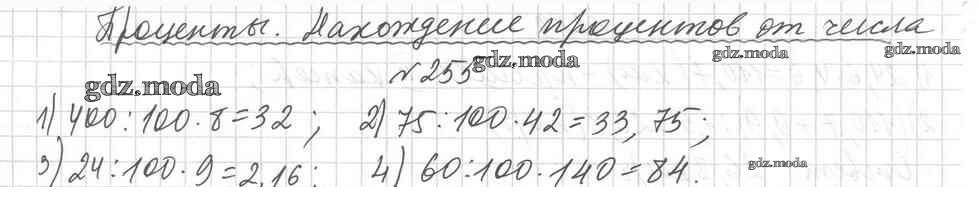 Проценты. Нахождение процентов от числа
gdz.moda gdz.moda
№ 255 gdz.moda
gdz.moda
1) 400:100·8=32; 2) 75:100·42=33,75;
3) 24:100·9=2,16; 4) 60:100·140=84.
gdz.moda